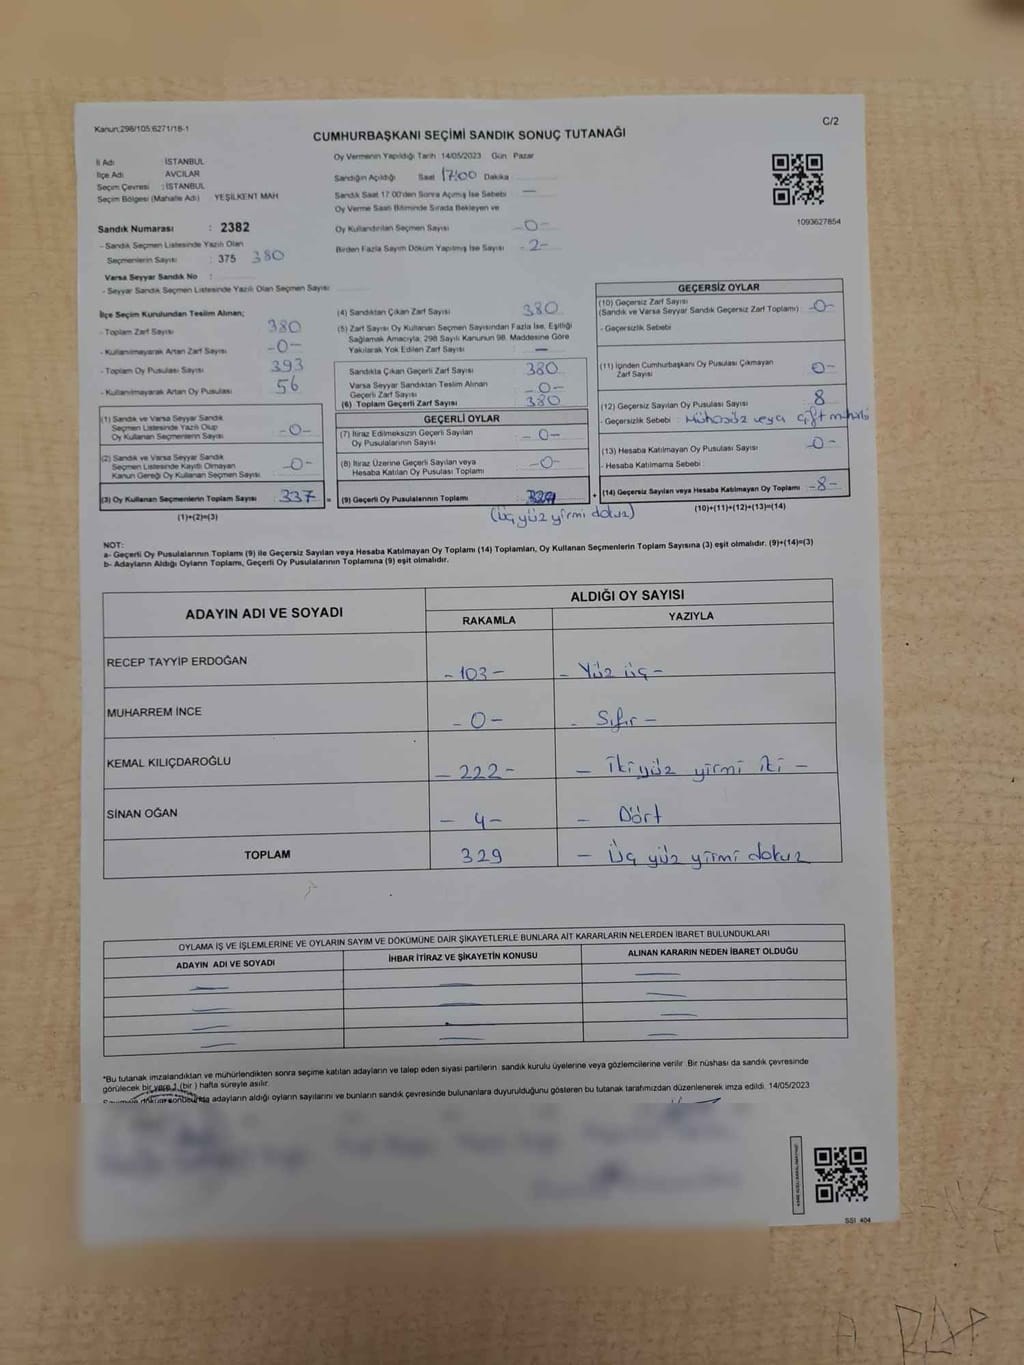 Kanun:298/105:6271/18-1
C/2
CUMHURBAŞKANI SEÇİMİ SANDIK SONUÇ TUTANAĞI
İl Adı : İSTANBUL
İlçe Adı : AVCILAR
Seçim Çevresi : İSTANBUL
Seçim Bölgesi (Mahalle Adı) YEŞİLKENT MAH
Sandık Numarası : 2382
- Sandık Seçmen Listesinde Yazılı Olan
Seçmenlerin Sayısı : 375 380
Varsa Seyyar Sandık No :
- Seyyar Sandık Seçmen Listesinde Yazılı Olan Seçmen Sayısı :
Oy Vermenin Yapıldığı Tarih 14/05/2023 Gün Pazar
Sandığın Açıldığı Saat 17:00 Dakika
Sandık Saat 17:00'den Sonra Açılmış İse Sebebi —
Oy Verme Saati Bitiminde Sırada Bekleyen ve
Oy Kullandırılan Seçmen Sayısı -0-
Birden Fazla Sayım Döküm Yapılmış İse Sayısı -2-
1093627854
İlçe Seçim Kurulundan Teslim Alınan;
- Toplam Zarf Sayısı 380
- Kullanılmayarak Artan Zarf Sayısı -0-
- Toplam Oy Pusulası Sayısı 393
- Kullanılmayarak Artan Oy Pusulası 56
(1) Sandık ve Varsa Seyyar Sandık
Seçmen Listesinde Yazılı Olup
Oy Kullanan Seçmenlerin Sayısı -0-
(2) Sandık ve Varsa Seyyar Sandık
Seçmen Listesinde Kayıtlı Olmayan
Kanun Gereği Oy Kullanan Seçmen Sayısı -0-
(3) Oy Kullanan Seçmenlerin Toplam Sayısı 337 =
(1)+(2)=(3)
(4) Sandıktan Çıkan Zarf Sayısı 380
(5) Zarf Sayısı Oy Kullanan Seçmen Sayısından Fazla İse, Eşitliği
Sağlamak Amacıyla; 298 Sayılı Kanunun 98. Maddesine Göre
Yakılarak Yok Edilen Zarf Sayısı —
Sandıkta Çıkan Geçerli Zarf Sayısı 380
Varsa Seyyar Sandıktan Teslim Alınan
Geçerli Zarf Sayısı -0-
(6) Toplam Geçerli Zarf Sayısı 380
GEÇERLİ OYLAR
(7) İtiraz Edilmeksizin Geçerli Sayılan
Oy Pusulalarının Sayısı -0-
(8) İtiraz Üzerine Geçerli Sayılan veya
Hesaba Katılan Oy Pusulası Toplamı -0-
(9) Geçerli Oy Pusulalarının Toplamı 329 +
(Üç yüz yirmi dokuz)
GEÇERSİZ OYLAR
(10) Geçersiz Zarf Sayısı
(Sandık ve Varsa Seyyar Sandık Geçersiz Zarf Toplamı) -0-
- Geçersizlik Sebebi :
(11) İçinden Cumhurbaşkanı Oy Pusulası Çıkmayan
Zarf Sayısı 0-
(12) Geçersiz Sayılan Oy Pusulası Sayısı 8
- Geçersizlik Sebebi : Mühürsüz veya çift mühürlü
(13) Hesaba Katılmayan Oy Pusulası Sayısı -0-
- Hesaba Katılmama Sebebi :
(14) Geçersiz Sayılan veya Hesaba Katılmayan Oy Toplamı -8-
(10)+(11)+(12)+(13)=(14)
NOT:
a- Geçerli Oy Pusulalarının Toplamı (9) ile Geçersiz Sayılan veya Hesaba Katılmayan Oy Toplamı (14) Toplamları, Oy Kullanan Seçmenlerin Toplam Sayısına (3) eşit olmalıdır. (9)+(14)=(3)
b- Adayların Aldığı Oyların Toplamı, Geçerli Oy Pusulalarının Toplamına (9) eşit olmalıdır.
ADAYIN ADI VE SOYADI
ALDIĞI OY SAYISI
RAKAMLA YAZIYLA
RECEP TAYYİP ERDOĞAN -103- - Yüz üç -
MUHARREM İNCE -0- - Sıfır -
KEMAL KILIÇDAROĞLU -222- - İki yüz yirmi iki -
SİNAN OĞAN -4- - Dört
TOPLAM 329 - Üç yüz yirmi dokuz
OYLAMA İŞ VE İŞLEMLERİNE VE OYLARIN SAYIM VE DÖKÜMÜNE DAİR ŞİKAYETLERLE BUNLARA AİT KARARLARIN NELERDEN İBARET BULUNDUKLARI
ADAYIN ADI VE SOYADI İHBAR İTİRAZ VE ŞİKAYETİN KONUSU ALINAN KARARIN NEDEN İBARET OLDUĞU
*Bu tutanak imzalandıktan ve mühürlendikten sonra seçime katılan adayların ve talep eden siyasi partilerin sandık kurulu üyelerine veya gözlemcilerine verilir. Bir nüshası da sandık çevresinde
görülecek bir yere 1 (bir ) hafta süreyle asılır.
adayların aldığı oyların sayılarını ve bunların sandık çevresinde bulunanlara duyurulduğunu gösteren bu tutanak tarafımızdan düzenlenerek imza edildi. 14/05/2023
SSI 404